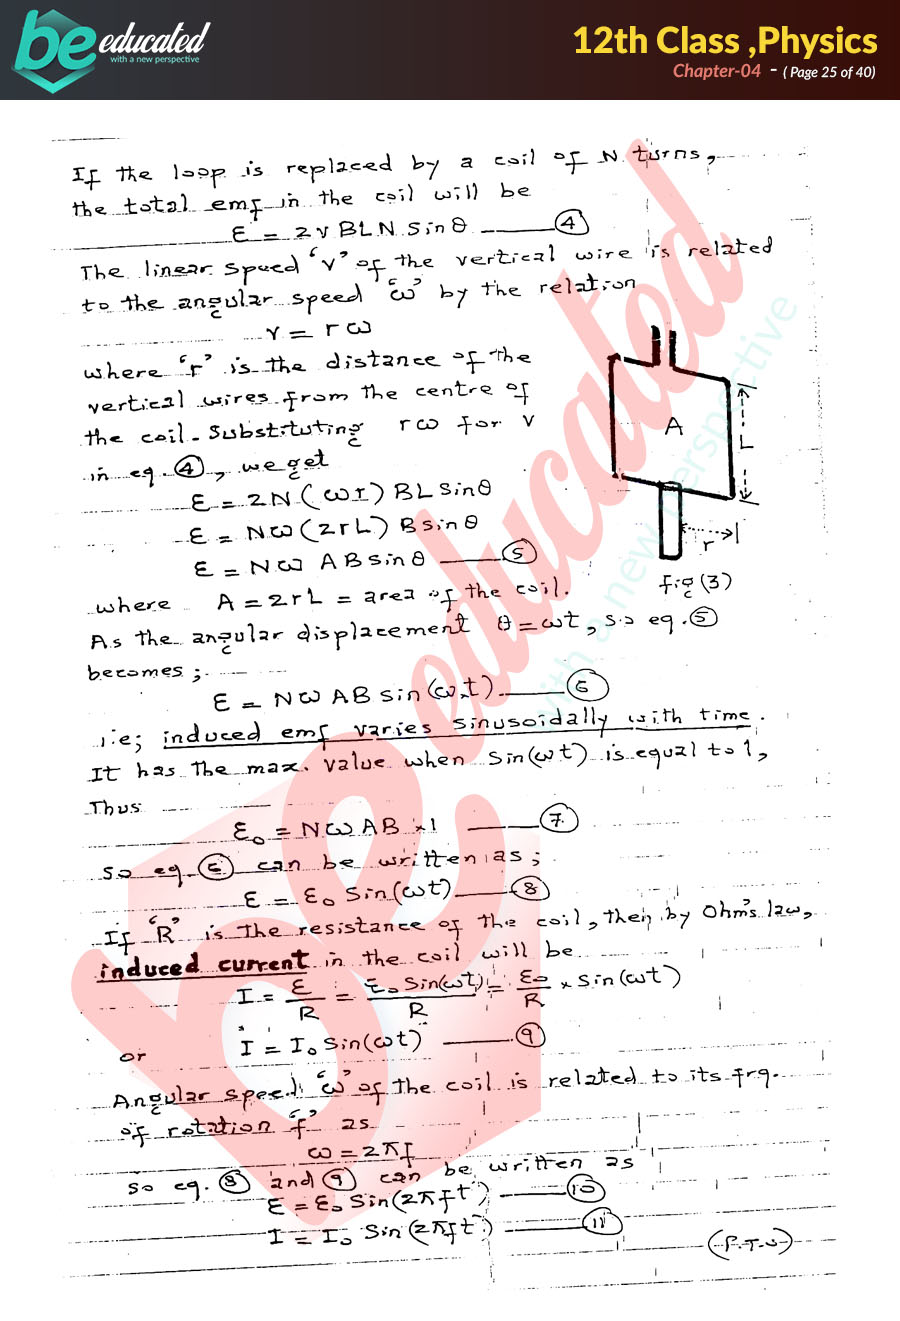 be educated
with a new perspective
12th Class ,Physics
Chapter-04 - ( Page 25 of 40)
If the loop is replaced by a coil of N turns,
the total emf in the coil will be
ε = 2vBLN Sinθ ④
The linear speed 'v' of the vertical wire is related
to the angular speed 'ω' by the relation
v = rω
where 'r' is the distance of the
vertical wires from the centre of
the coil. Substituting rω for v
in eq. ④, we get
ε = 2N(ωr) BL Sinθ
ε = Nω(2rL) B sinθ
ε = Nω AB sinθ ⑤
where A = 2rL = area of the coil.
A
L
r
fig (3)
As the angular displacement θ = ωt, so eq. ⑤
becomes;
ε = Nω AB sin(ωt) ⑥
i.e; induced emf varies sinusoidally with time.
It has the max. value when Sin(ωt) is equal to 1,
Thus
ε₀ = Nω AB ×1 ⑦
So eq. ⑥ can be written as;
ε = ε₀ Sin(ωt) ⑧
If 'R' is the resistance of the coil, then by Ohm's law,
induced current in the coil will be
I = ε/R = ε₀ Sin(ωt)/R = ε₀/R × Sin(ωt)
or I = I₀ Sin(ωt) ⑨
Angular speed 'ω' of the coil is related to its frq.
of rotation 'f' as
ω = 2πf
so eq. ⑧ and ⑨ can be written as
ε = ε₀ Sin(2πft) ⑩
I = I₀ Sin(2πft) ⑪
(P.T.O)
be educated
with a new perspective